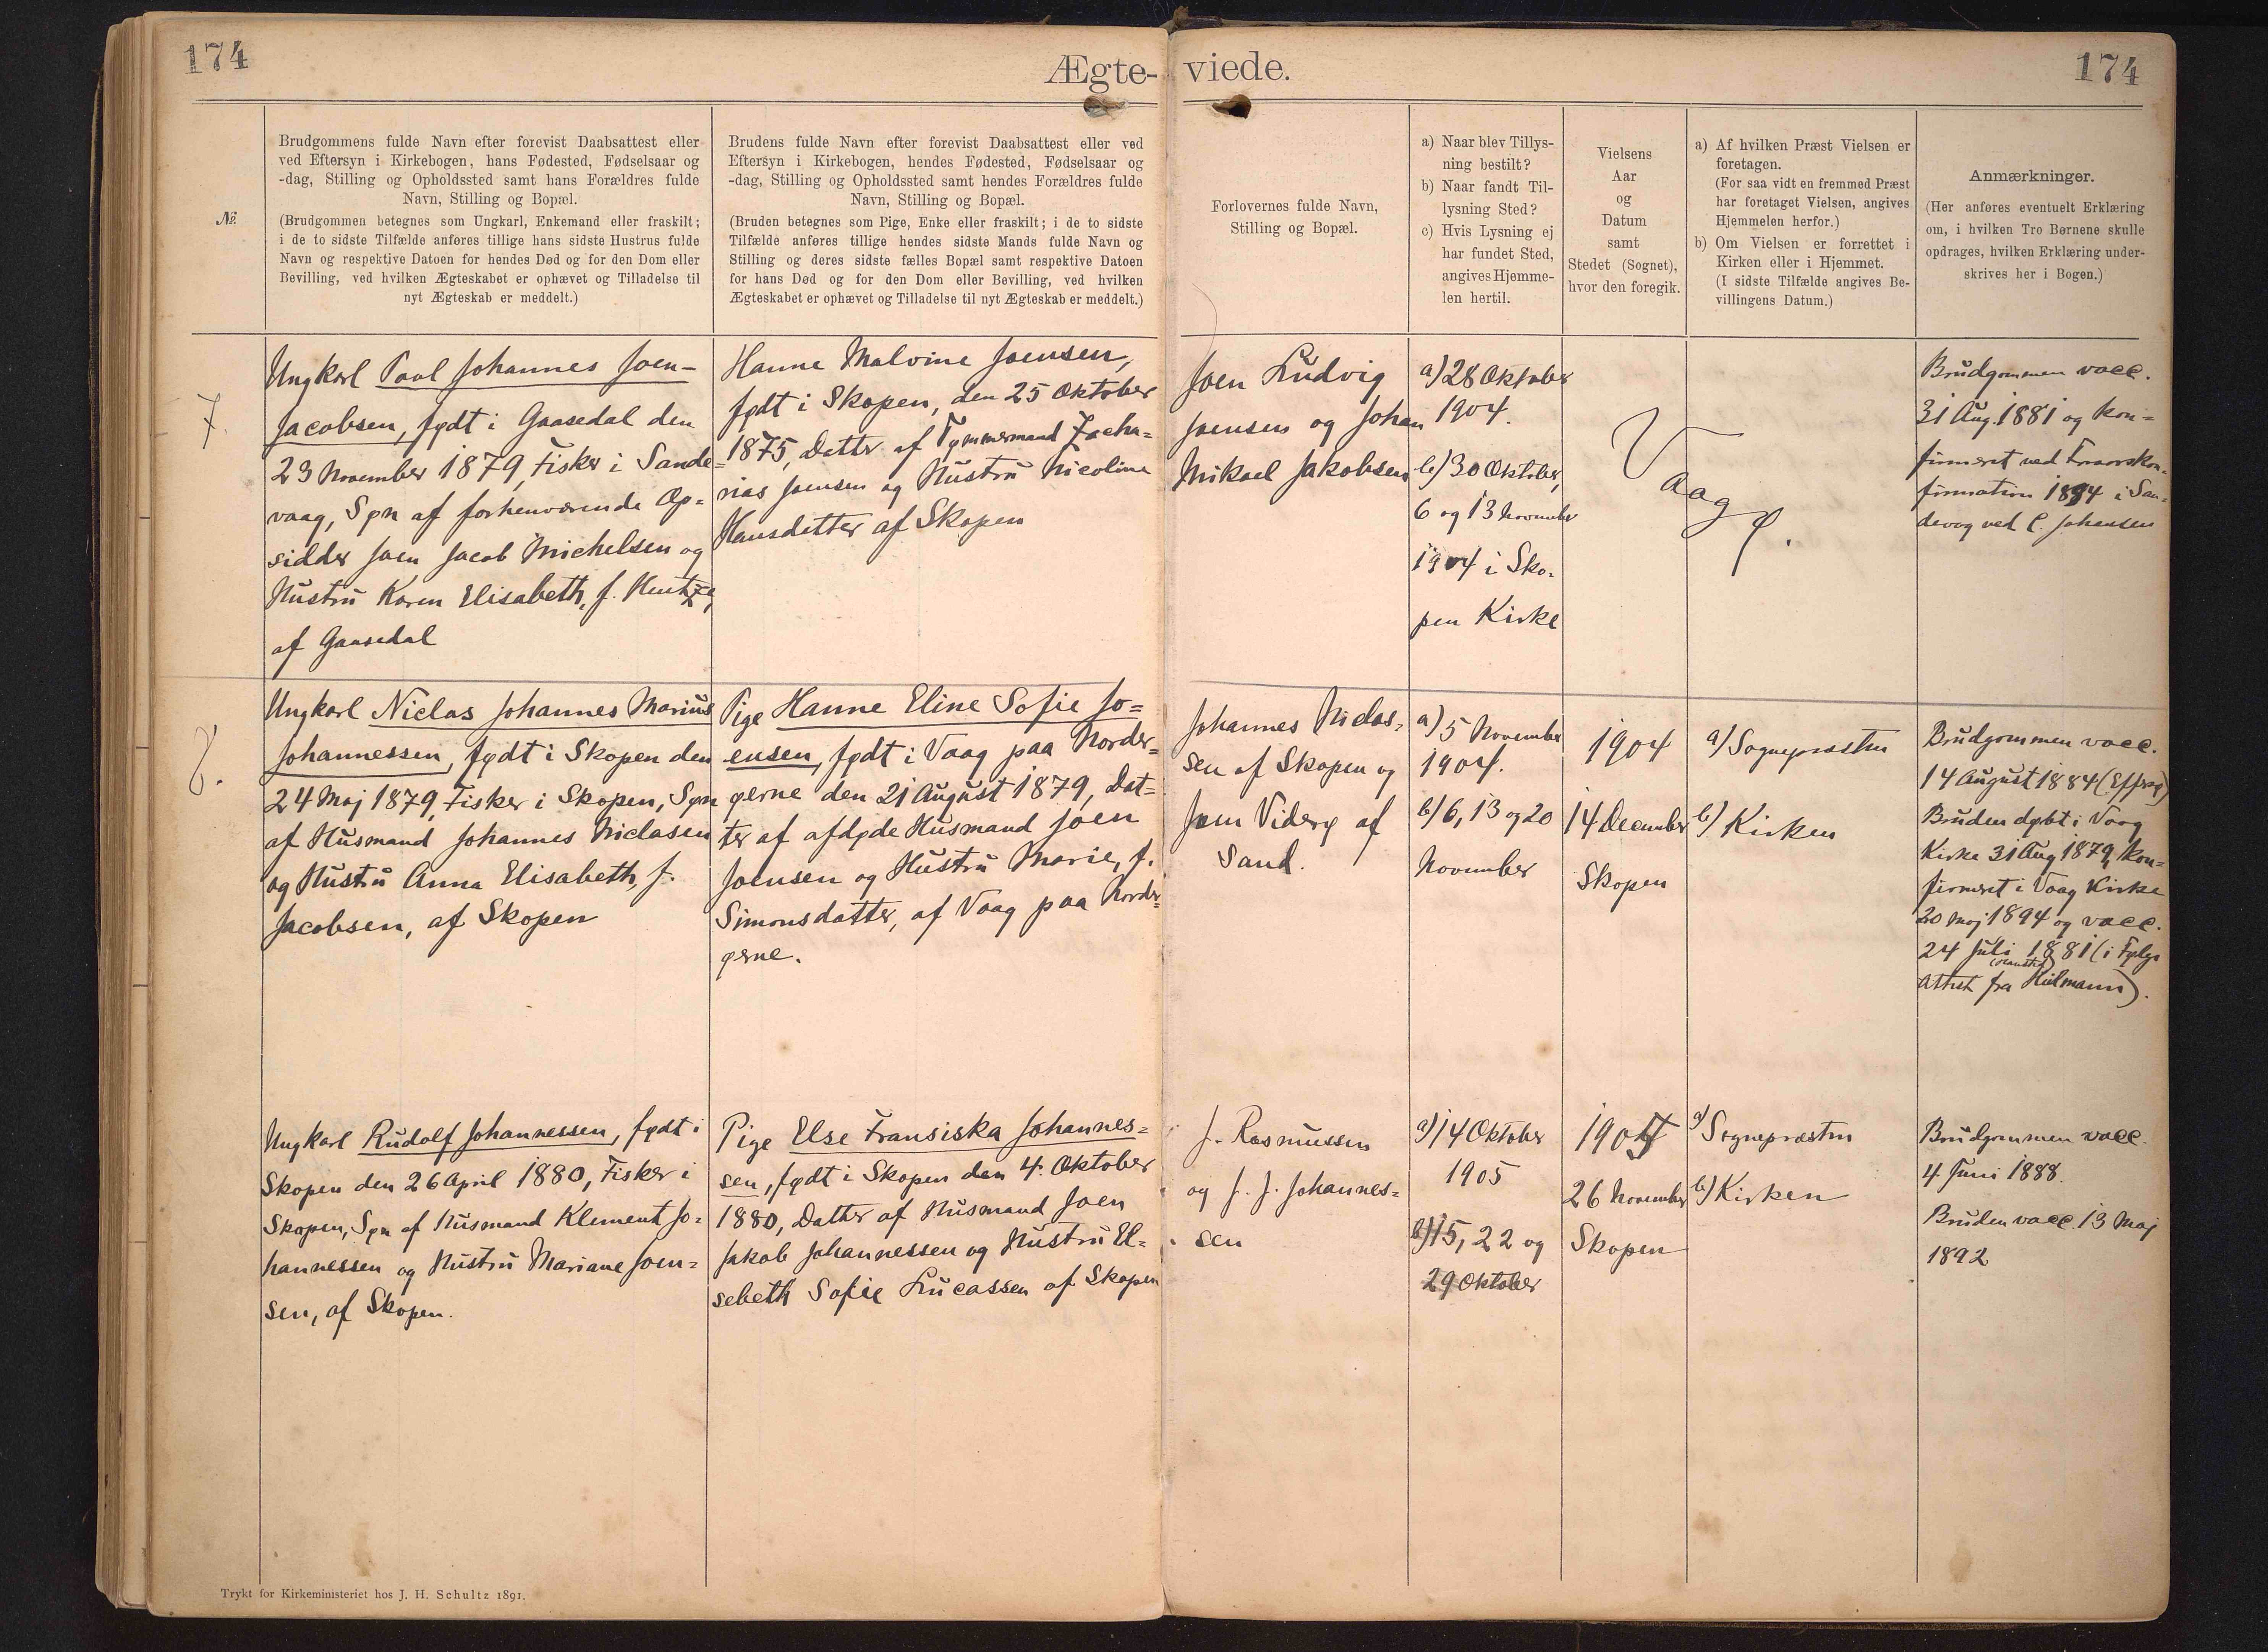 174
Ægte- viede.
174
№.
Brudgommens fulde Navn efter forevist Daabsattest eller
ved Eftersyn i Kirkebogen, hans Fødested, Fødselsaar og
-dag, Stilling og Opholdssted samt hans Forældres fulde
Navn, Stilling og Bopæl.
(Brudgommen betegnes som Ungkarl, Enkemand eller fraskilt;
i de to sidste Tilfælde anføres tillige hans sidste Hustrus fulde
Navn og respektive Datoen for hendes Død og for den Dom eller
Bevilling, ved hvilken Ægteskabet er ophævet og Tilladelse til
nyt Ægteskab er meddelt.)
Brudens fulde Navn efter forevist Daabsattest eller ved
Eftersyn i Kirkebogen, hendes Fødested, Fødselsaar og
-dag, Stilling og Opholdssted samt hendes Forældres fulde
Navn, Stilling og Bopæl.
(Bruden betegnes som Pige, Enke eller fraskilt; i de to sidste
Tilfælde anføres tillige hendes sidste Mands fulde Navn og
Stilling og deres sidste fælles Bopæl samt respektive Datoen
for hans Død og for den Dom eller Bevilling, ved hvilken
Ægteskabet er ophævet og Tilladelse til nyt Ægteskab er meddelt.)
Forlovernes fulde Navn,
Stilling og Bopæl.
a) Naar blev Tillys-
ning bestilt?
b) Naar fandt Til-
lysning Sted?
c) Hvis Lysning ej
har fundet Sted,
angives Hjemme-
len hertil.
Vielsens
Aar
og
Datum
samt
Stedet (Sognet),
hvor den foregik.
a) Af hvilken Præst Vielsen er
foretagen.
(For saa vidt en fremmed Præst
har foretaget Vielsen, angives
Hjemmelen herfor.)
b) Om Vielsen er forrettet i
Kirken eller i Hjemmet.
(I sidste Tilfælde angives Be-
villingens Datum.)
Anmærkninger.
(Her anføres eventuelt Erklæring
om, i hvilken Tro Børnene skulle
opdrages, hvilken Erklæring under-
skrives her i Bogen.)
7.
Ungkarl Poul Johannes Joen-
Jacobsen, født i Gaasedal den
23 November 1879, Fisker i Sande-
vaag, Søn af forhenværende Op-
sidder Joen Jacob Michelsen og
Hustru Karen Elisabeth, f. Hentze,
af Gaasedal
Hanne Malvine Joensen,
født i Skopen, den 25 Oktober
1875, Datter af Tømmermand Zacha-
rias Joensen og Hustru Nicoline
Hansdatter af Skopen
Joen Ludvig
Joensen og Johan
Mikael Jakobsen
a) 28 Oktober
1904.
b) 30 Oktober,
6 og 13 November
1904 i Sko-
pen Kirke
Vaagø.
Brudgommen vacc.
31 Aug. 1881 og kon-
firmeret ved
firmation 1894 i San-
devog ved C. Johansen
8.
Ungkarl Niclas Johannes Marius
Johannessen, født i Skopen den
24 Maj 1879, Fisker i Skopen, Søn
af Husmand Johannes Niclasen
og Hustru Anna Elisabeth, f.
Jacobsen, af Skopen
Pige Hanne Eline Sofie Jo-
ensen, født i Vaag paa Norder-
øerne den 21 August 1879, Dat-
ter af afdøde Husmand Joen
Joensen og Hustru Marie, f.
Simonsdatter, af Vaag paa Norder-
øerne.
Johannes Niclas-
sen af Skopen og
Joen Viderø af
Sand.
a) 5 November
1904.
b) 6, 13 og 20
November
1904
14 December
Skopen
a) Sognepræsten
b) Kirken
Brudgommen vacc.
14 August 1884
Bruden døbt i Vaag
Kirke 31 Aug 1879, kon-
firmeret i Vaag Kirke
20 Maj 1894 og vacc.
24 Juli 1881 (i Følge
Attest fra Hulmann).
Ungkarl Rudolf Johannessen, født i
Skopen den 26 April 1880, Fisker i
Skopen, Søn af Husmand Klement Jo-
hannessen og Hustru Mariane Joen-
sen, af Skopen.
Pige Else Fransiska Johannes-
sen, født i Skopen den 4. Oktober
1880, Datter af Husmand Joen
Jakob Johannessen og Hustru El-
sebeth Sofie Lucassen af Skopen
J. Rasmussen
og J. J. Johannes-
sen
a) 14 Oktober
1905
b) 15, 22 og
29 Oktober
1905
26 November
Skopen
a) Sognepræsten
b) Kirken
Brudgommen vacc.
4 Juni 1888.
Bruden vacc. 13 Maj
1892
Trykt for Kirkeministeriet hos J. H. Schultz 1891.